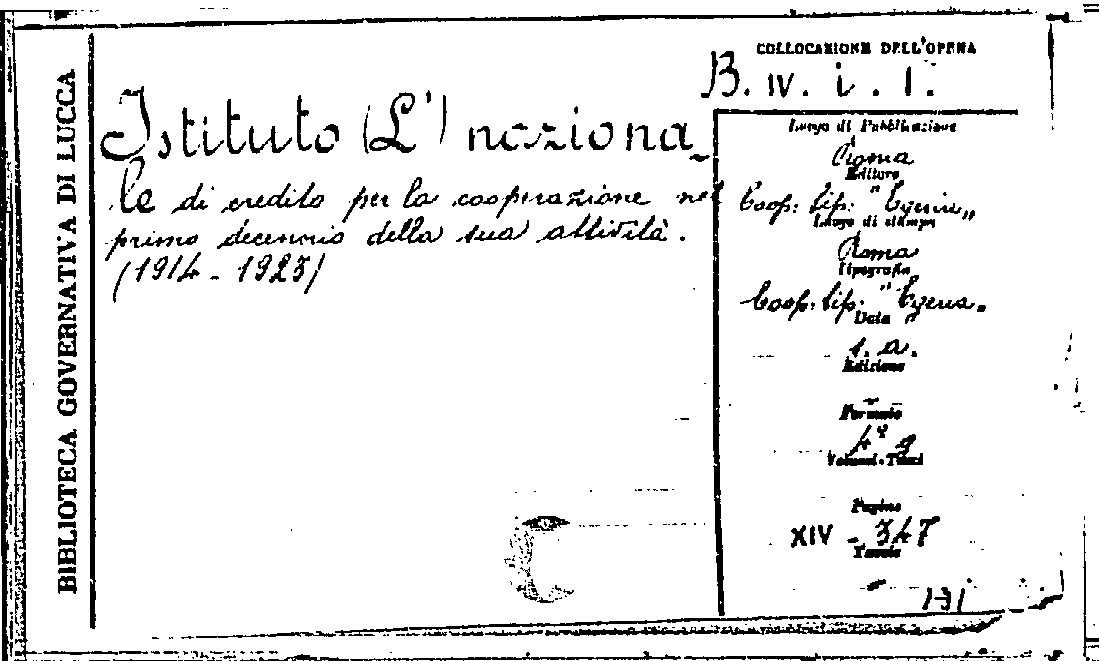 BIBLIOTECA GOVERNATIVA DI LUCCA
COLLOCAZIONE DELL'OPERA
B. IV. i. 1.
Istituto (L') naziona-
le di credito per la cooperazione nel
primo decennio della sua attività.
(1914 - 1923)
Luogo di Pubblicazione
Roma
Editore
Coop: tip: "Egeria"
Luogo di stampa
Roma
Tipografia
Coop: tip: "Egeria.
Data
s. a.
Edizione
Formato
4º g
Volumi-Tomi
Pagine
XIV - 347
Tavole